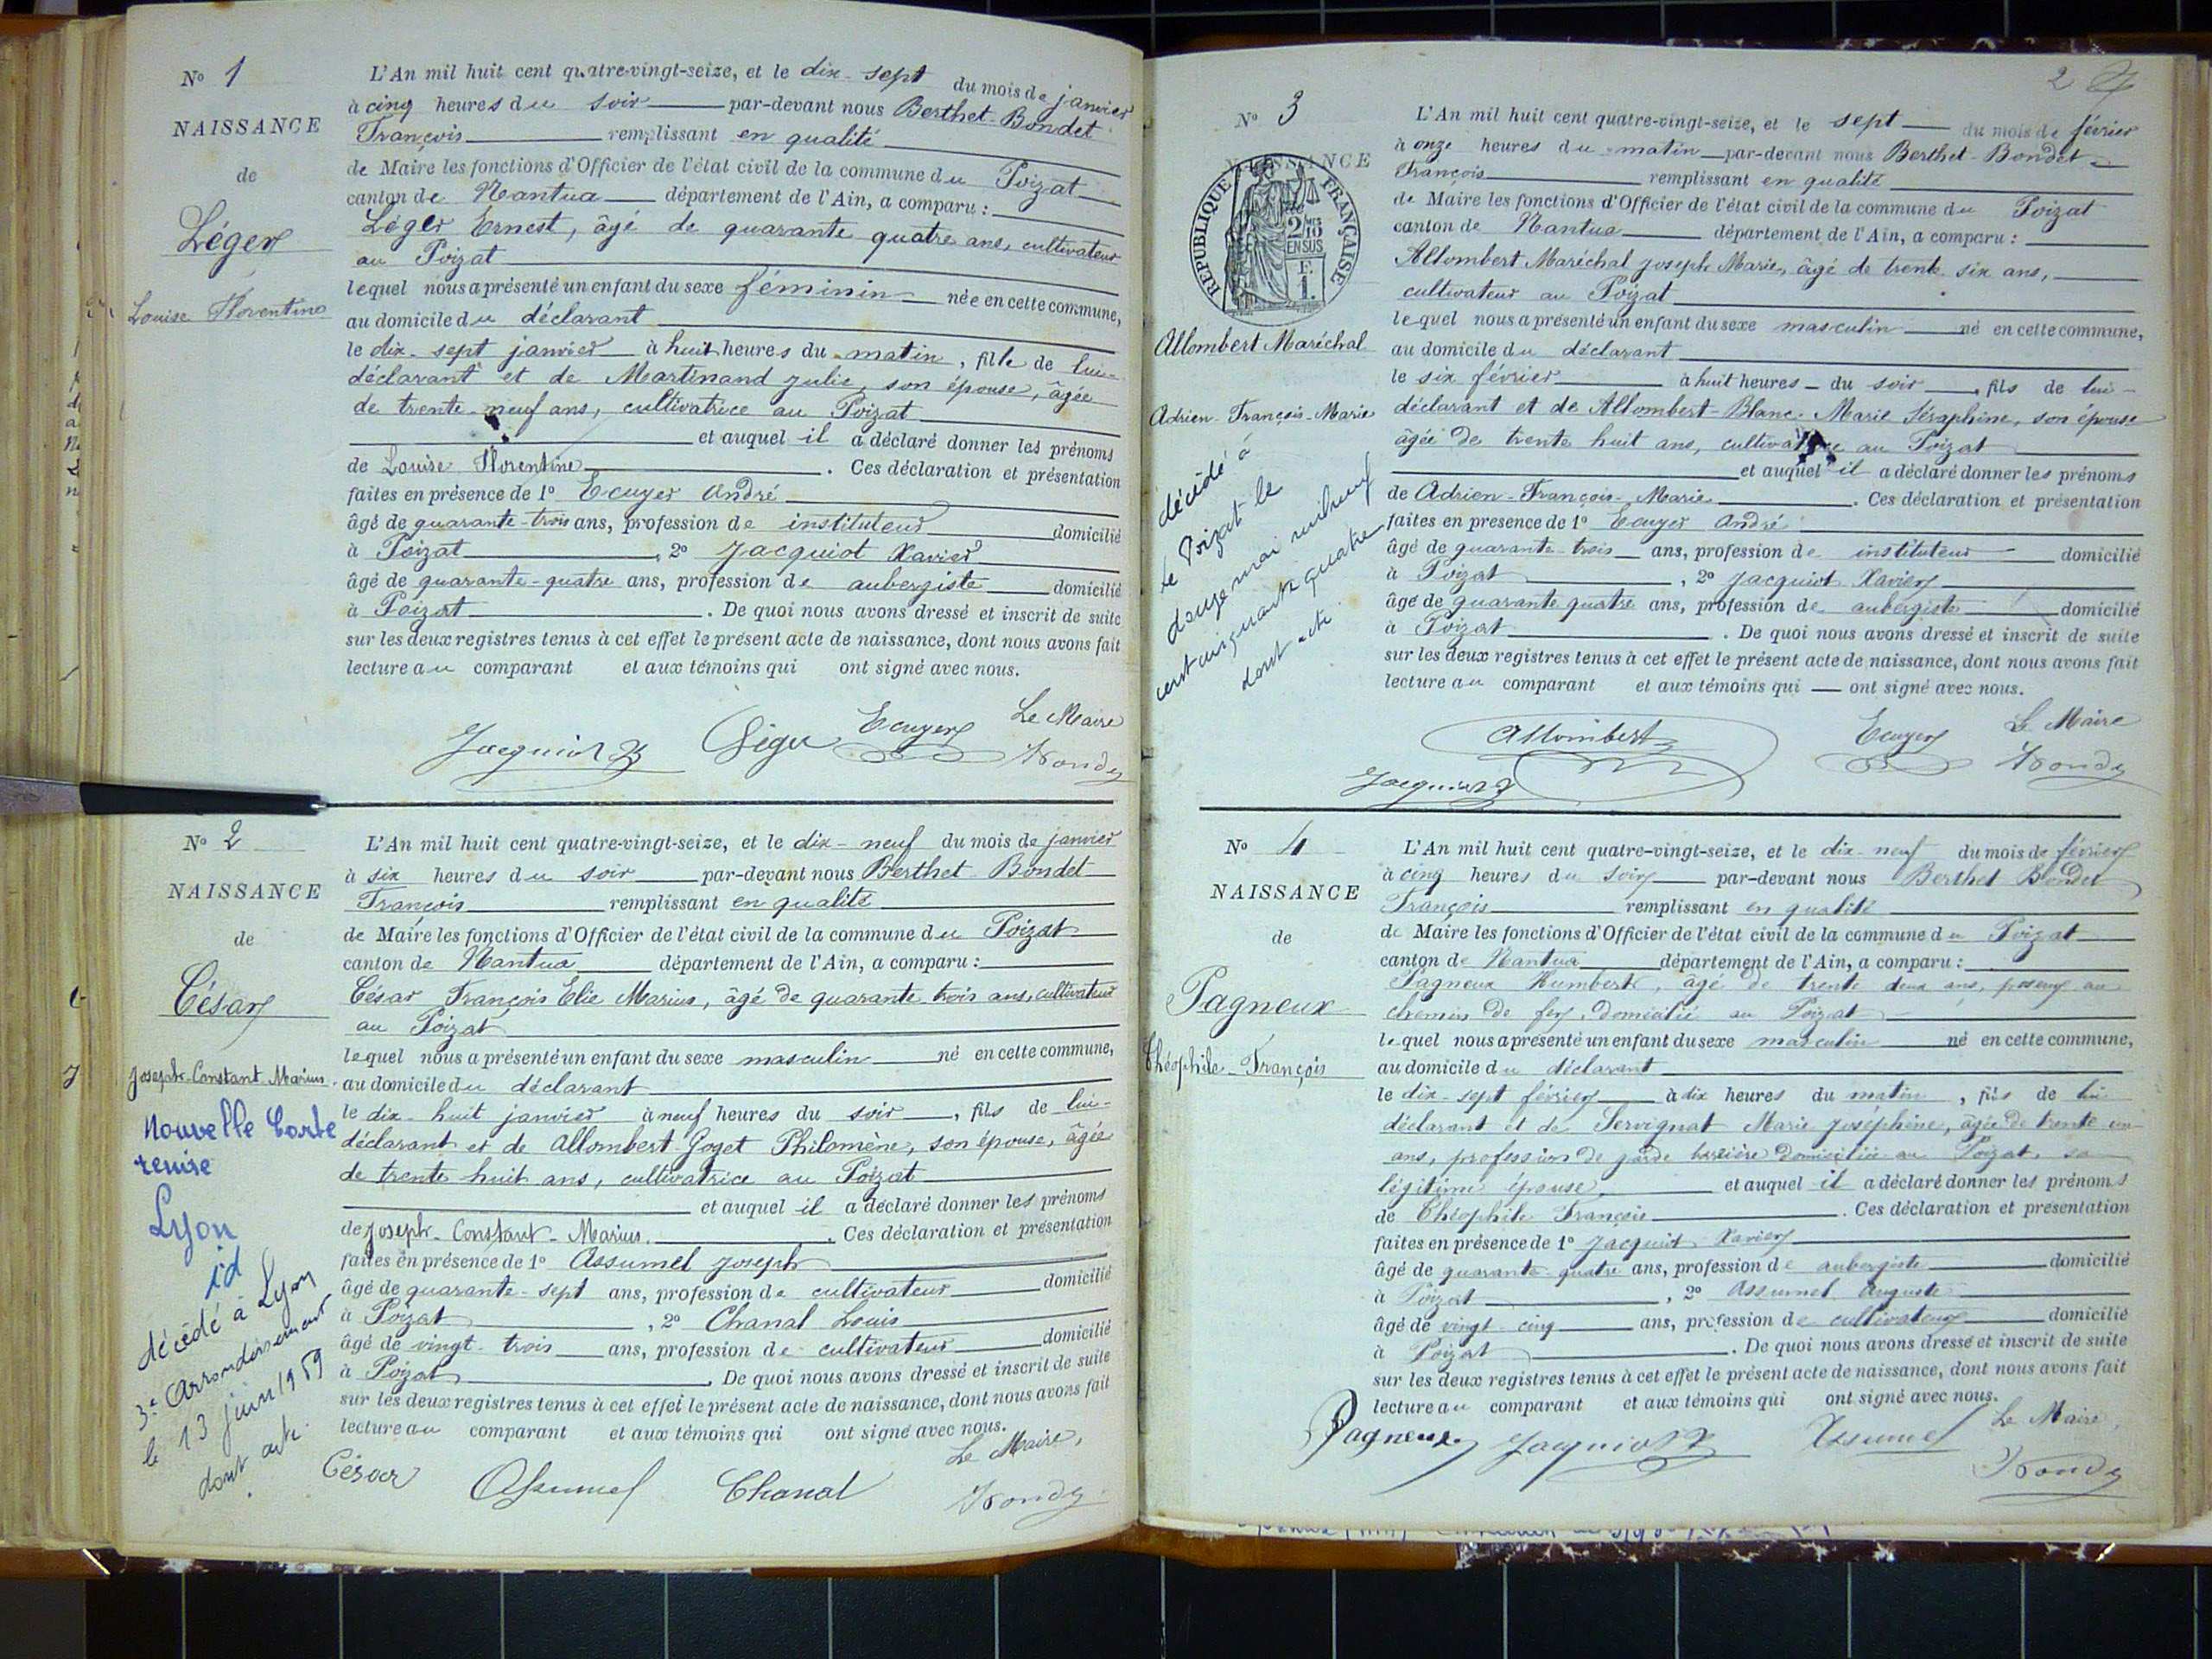 N° 1
NAISSANCE
de
Léger
Louise Florentine
L'An mil huit cent quatre-vingt-seize, et le dix-sept du mois de janvier
à cinq heures du soir par-devant nous Berthet-Bondet
François remplissant en qualité
de Maire les fonctions d'Officier de l'état civil de la commune du Poizat
canton de Nantua département de l'Ain, a comparu :
Léger Ernest, âgé de quarante quatre ans, cultivateur
au Poizat
lequel nous a présenté un enfant du sexe féminin née en cette commune,
au domicile du déclarant
le dix-sept janvier à huit heures du matin, fille de lui-
déclarant et de Martinand Julie, son épouse, âgée
de trente-neuf ans, cultivatrice au Poizat
et auquel il a déclaré donner les prénoms
de Louise Florentine. Ces déclaration et présentation
faites en présence de 1° Ecuyer André
âgé de quarante-trois ans, profession de instituteur domicilié
à Poizat, 2° Jacquiot Xavier
âgé de quarante-quatre ans, profession de aubergiste domicilié
à Poizat. De quoi nous avons dressé et inscrit de suite
sur les deux registres tenus à cet effet le présent acte de naissance, dont nous avons fait
lecture au comparant et aux témoins qui ont signé avec nous.
Jacquiot X Léger Ecuyer Le Maire
Bondet
N° 2
NAISSANCE
de
César
Joseph-Constant-Marius
Nouvelle Carte
remise
Lyon
id
décédé à Lyon
3e Arrondissement
le 13 juin 1959
dont acte
L'An mil huit cent quatre-vingt-seize, et le dix-neuf du mois de janvier
à six heures du soir par-devant nous Berthet-Bondet
François remplissant en qualité
de Maire les fonctions d'Officier de l'état civil de la commune du Poizat
canton de Nantua département de l'Ain, a comparu :
César François Elie Marius, âgé de quarante trois ans, cultivateur
au Poizat
lequel nous a présenté un enfant du sexe masculin né en cette commune,
au domicile du déclarant
le dix-huit janvier à neuf heures du soir, fils de lui-
déclarant et de Allombert-Goget Philomène, son épouse, âgée
de trente huit ans, cultivatrice au Poizat
et auquel il a déclaré donner les prénoms
de Joseph-Constant-Marius. Ces déclaration et présentation
faites en présence de 1° Assumel Joseph
âgé de quarante-sept ans, profession de cultivateur domicilié
à Poizat, 2° Chanal Louis
âgé de vingt-trois ans, profession de cultivateur domicilié
à Poizat. De quoi nous avons dressé et inscrit de suite
sur les deux registres tenus à cet effet le présent acte de naissance, dont nous avons fait
lecture au comparant et aux témoins qui ont signé avec nous.
Le Maire,
César Assumel Chanal Bondet
2
N° 3
NAISSANCE
REPUBLIQUE FRANÇAISE
2/10
EN SUS
F.
1.
Allombert Maréchal
Adrien-François-Marie
décédé à
le Poizat le
douze mai mil neuf
cent cinquante quatre
dont acte
L'An mil huit cent quatre-vingt-seize, et le sept du mois de février
à onze heures du matin par-devant nous Berthet-Bondet
François remplissant en qualité
de Maire les fonctions d'Officier de l'état civil de la commune du Poizat
canton de Nantua département de l'Ain, a comparu :
Allombert Maréchal Joseph Marie, âgé de trente six ans,
cultivateur au Poizat
lequel nous a présenté un enfant du sexe masculin né en cette commune,
au domicile du déclarant
le six février à huit heures du soir, fils de lui-
déclarant et de Allombert-Blanc Marie Séraphine, son épouse
âgée de trente huit ans, cultivatrice au Poizat
et auquel il a déclaré donner les prénoms
de Adrien-François-Marie. Ces déclaration et présentation
faites en présence de 1° Ecuyer André
âgé de quarante-trois ans, profession de instituteur domicilié
à Poizat, 2° Jacquiot Xavier
âgé de quarante quatre ans, profession de aubergiste domicilié
à Poizat. De quoi nous avons dressé et inscrit de suite
sur les deux registres tenus à cet effet le présent acte de naissance, dont nous avons fait
lecture au comparant et aux témoins qui — ont signé avec nous.
Allombert Ecuyer Le Maire
Jacquiot Bondet
N° 4
NAISSANCE
de
Pagneux
Théophile-François
L'An mil huit cent quatre-vingt-seize, et le dix-neuf du mois de février
à cinq heures du soir par-devant nous Berthet Bondet
François remplissant en qualité
de Maire les fonctions d'Officier de l'état civil de la commune du Poizat
canton de Nantua département de l'Ain, a comparu :
Pagneux Humbert, âgé de trente deux ans, poseur au
chemin de fer, domicilié au Poizat
lequel nous a présenté un enfant du sexe masculin né en cette commune,
au domicile du déclarant
le dix-sept février à dix heures du matin, fils de lui
déclarant et de Servignat Marie Joséphine, âgée de trente un
ans, profession de garde barrière domiciliée au Poizat, sa
légitime épouse, et auquel il a déclaré donner les prénoms
de Théophile François. Ces déclaration et présentation
faites en présence de 1° Jacquiot Xavier
âgé de quarante-quatre ans, profession de aubergiste domicilié
à Poizat, 2° Assumel Auguste
âgé de vingt-cinq ans, profession de cultivateur domicilié
à Poizat. De quoi nous avons dressé et inscrit de suite
sur les deux registres tenus à cet effet le présent acte de naissance, dont nous avons fait
lecture au comparant et aux témoins qui ont signé avec nous.
Pagneux Jacquiot X Assumel Le Maire,
Bondet